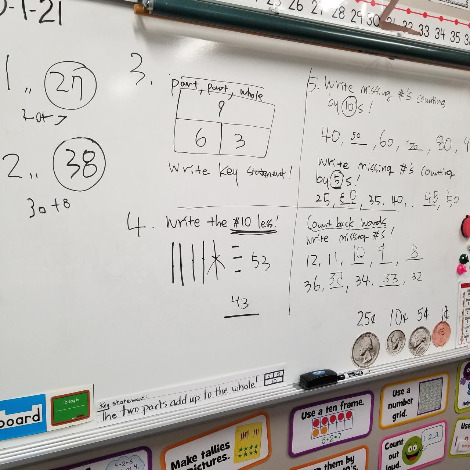 -1-21
21 28 29 30 31 32 33 34 35
1.. 27
2 or 7
2.. 38
30+8
3.
part, part, whole
9
6 3
Write key statement!
4. Write the #10 less!
53
43
5. Write missing #'s counting
by 10s!
40, 50, 60, 70, 80, 9
Write missing #'s counting
by 5's!
25, 30, 35, 40, 45, 50
Count back wards
Write missing #'s!
12, 11, 10, 9, 8
36, 35, 34, 33, 32
25¢ 10¢ 5¢ 1¢
board
Key Statement:
The two parts add up to the whole!
Make tallies
pictures.
Use a ten frame.
Use a
number
grid.
Count
out
loud
Use
them by